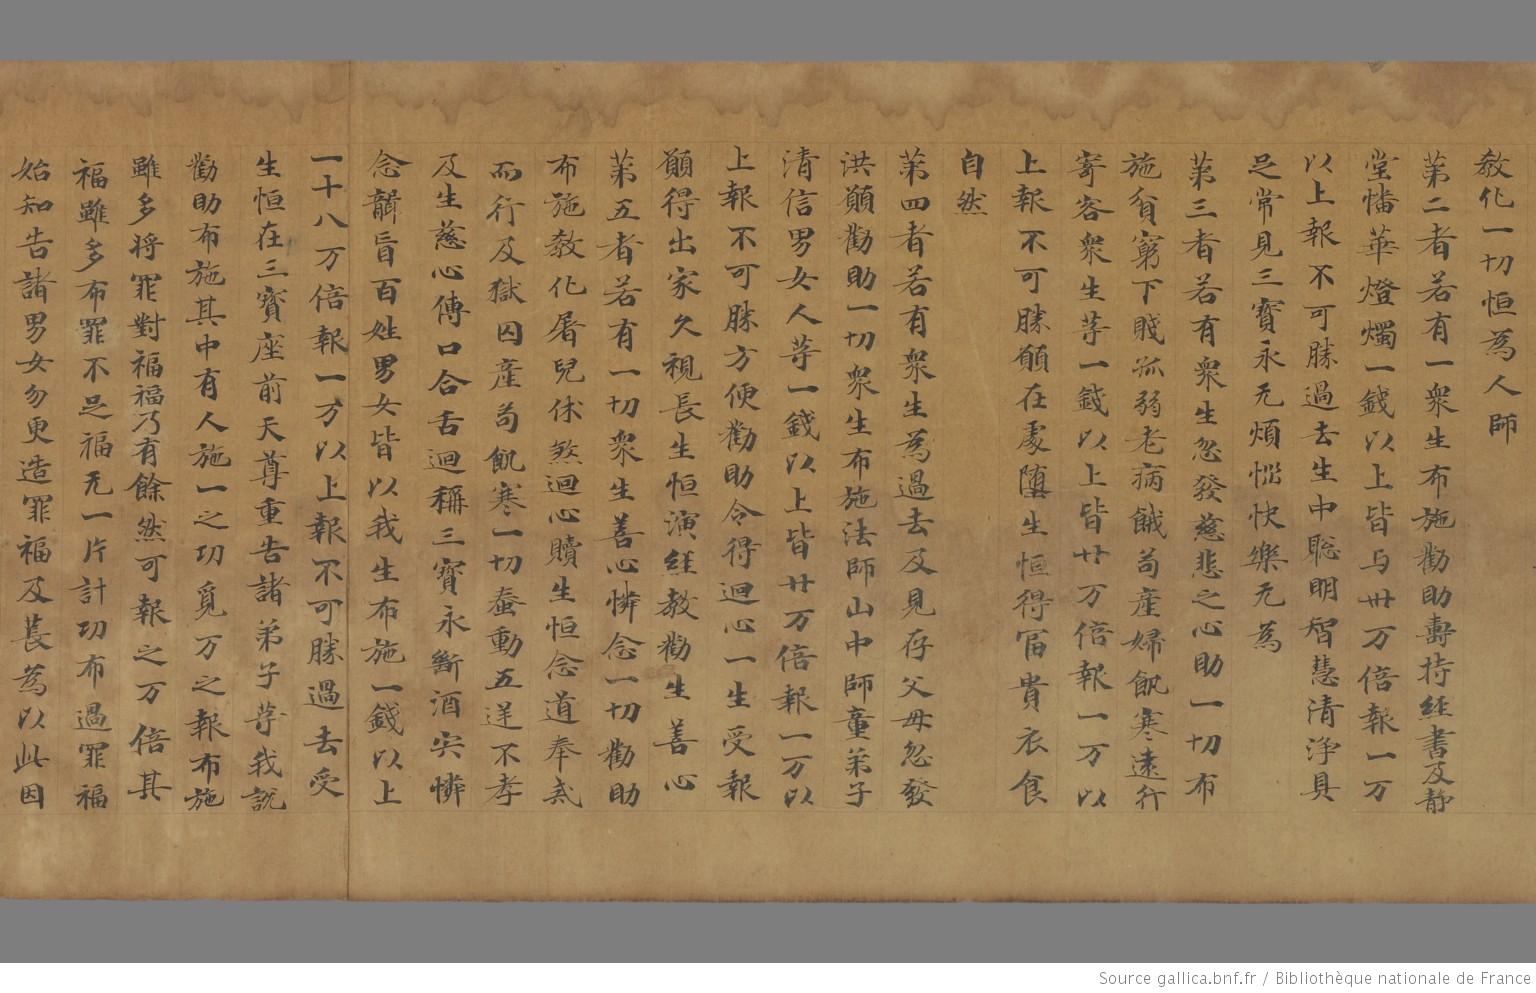 教化一切恒為人師
第二者若有一衆生布施勸助壽持經書及靜
堂幡華燈燭一錢以上皆与卅万倍報一万
以上報不可勝過去生中聡明智慧清淨具
足常見三寶永无煩惱快樂无為
第三者若有衆生忽發慈悲之心助一切布
施貧窮下賤孤弱老病餓荀産婦飢寒遠行
寄客衆生等一錢以上皆廿万倍報一万以
上報不可勝願在處随生恒得冨貴衣食
自然
第四者若有衆生為過去及見存父母忽發
洪願勸助一切衆生布施法師山中師童弟子
清信男女人等一錢以上皆廿万倍報一万以
上報不可勝方便勸助令得迴心一生受報
願得出家久視長生恒演經教勸生善心
第五者若有一切衆生善心憐念一切勸助
布施教化屠兒休煞迴心贖生恒念道奉戒
而行及獄囚産荀飢寒一切蚕動五逆不孝
及生慈心傳口合舌迴稱三寶永斷酒宍憐
念聾盲百姓男女皆以我生布施一錢以上
一十八万倍報一万以上報不可勝過去受
生恒在三寶座前天尊重告諸弟子等我說
勸助布施其中有人施一之功覓万之報布施
雖多将罪對福福乃有餘然可報之万倍其
福雖多布罪不足福无一片計功布過罪福
始知告諸男女勿更造罪福及萇為以此因
Source gallica.bnf.fr / Bibliothèque nationale de France